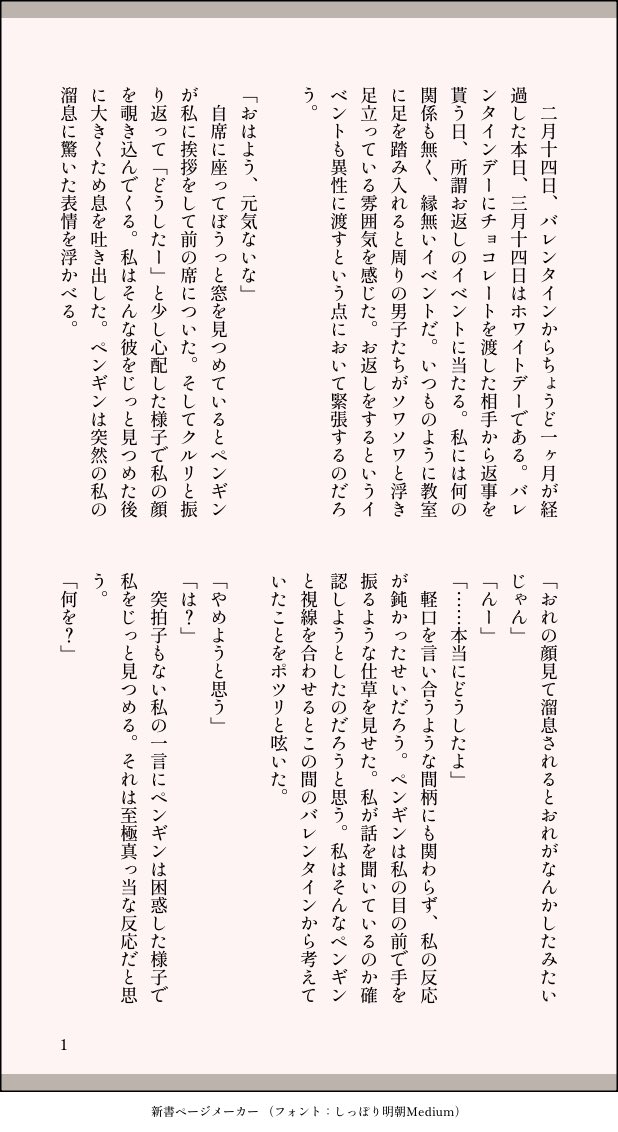 二月十四日、バレンタインからちょうど一ヶ月が経
過した本日、三月十四日はホワイトデーである。バレ
ンタインデーにチョコレートを渡した相手から返事を
貰う日、所謂お返しのイベントに当たる。私には何の
関係も無く、縁無いイベントだ。いつものように教室
に足を踏み入れると周りの男子たちがソワソワと浮き
足立っている雰囲気を感じた。お返しをするというイ
ベントも異性に渡すという点において緊張するのだろ
う。
「おはよう、元気ないな」
自席に座ってぼうっと窓を見つめているとペンギン
が私に挨拶をして前の席についた。そしてクルリと振
り返って「どうしたー」と少し心配した様子で私の顔
を覗き込んでくる。私はそんな彼をじっと見つめた後
に大きくため息を吐き出した。ペンギンは突然の私の
溜息に驚いた表情を浮かべる。
「おれの顔見て溜息されるとおれがなんかしたみたい
じゃん」
「んー」
「……本当にどうしたよ」
軽口を言い合うような間柄にも関わらず、私の反応
が鈍かったせいだろう。ペンギンは私の目の前で手を
振るような仕草を見せた。私が話を聞いているのか確
認しようとしたのだろうと思う。私はそんなペンギン
と視線を合わせるとこの間のバレンタインから考えて
いたことをポツリと呟いた。
「やめようと思う」
「は？」
突拍子もない私の一言にペンギンは困惑した様子で
私をじっと見つめる。それは至極真っ当な反応だと思
う。
「何を？」
1
新書ページメーカー（フォント：しっぽり明朝Medium）